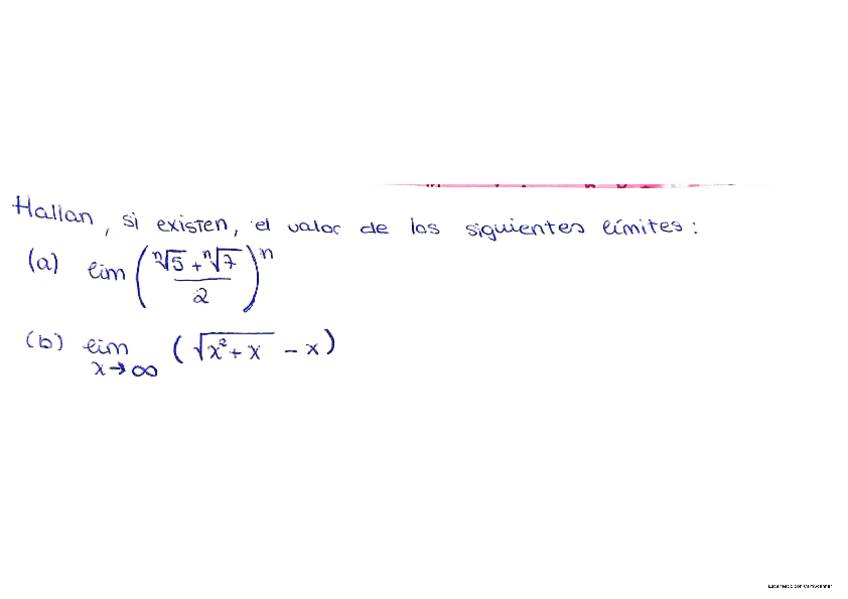 Hallan, si existen, el valor de los siguientes límites:
(a) lim ((ⁿ√5 + ⁿ√7)/2)ⁿ
(b) lim x→∞ (√(x²+x) - x)